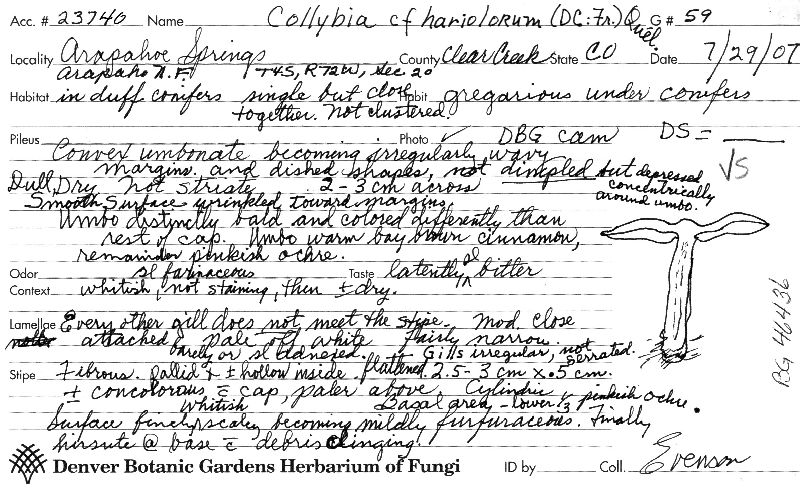 Acc. # 23740 Name Collybia cf hariolorum (DC:Fr.) Quél. G# 59
Locality Arapahoe Springs County Clear Creek State CO Date 7/29/07
Arapaho N.F. T4S, R72W, Sec 20
Habitat in duff conifers single but close Habit gregarious under conifers
together. Not clustered.
Pileus Photo ✓ DBG cam DS = ____
Convex umbonate becoming irregularly wavy VS
margins and dished shapes, not dimpled but depressed
concentrically
around umbo.
Dull, Dry Not striate 2-3 cm across
Smooth Surface wrinkled toward margins
Umbo distinctly bald and colored differently than
rest of cap. Umbo warm bay brown cinnamon,
remainder pinkish ochre.
Odor sl farinaceous Taste latently sl bitter
Context whitish, not staining, then ± dry.
Lamellae Every other gill does not meet the stipe. Mod. close
attached pale off white fairly narrow.
barely or sl adnexed. Gills irregular, not serrated.
Stipe Fibrous. pallid + ± hollow inside flattened. 2.5-3 cm x .5 cm.
± concolorous c̄ cap, paler above. Cylindric
whitish Basal area, lower 1/3 pinkish ochre.
Surface finely scaley becoming mildly furfuraceous. Finally
hirsute @ base c̄ debris clinging.
Denver Botanic Gardens Herbarium of Fungi ID by Coll. Evenson
BG 46436